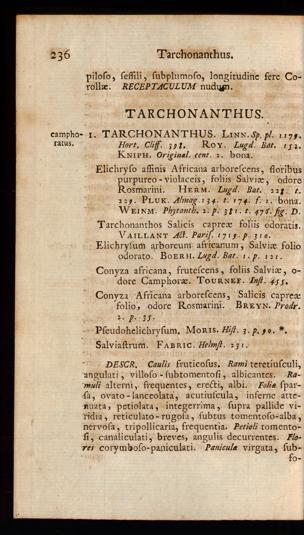 236 Tarchonanthus.
piloso, sessili, subplumoso, longitudine fere Co-
rollæ. RECEPTACULUM nudum.
TARCHONANTHUS.
campho- 1. TARCHONANTHUS. LINN. Sp. pl. 1179.
ratus. Hort. Cliff. 398. ROY. Lugd. Bat. 152.
KNIPH. Original. cent. 2. bona.
Elichryso affinis Africana arborescens, floribus
purpureo-violaceis, foliis Salviæ, odore
Rosmarini. HERM. Lugd. Bat. 228. t.
229. PLUK. Almag. 134. t. 174. f. 1. bona.
WEINM. Phytanth. 2. p. 381. t. 476. fig. D.
Tarchonanthos Salicis capreæ foliis odoratis.
VAILLANT Act. Paris. 1719. p. 310.
Elichrysum arboreum africanum, Salviæ folio
odorato. BOERH. Lugd. Bat. 1. p. 121.
Conyza africana, frutescens, foliis Salviæ, o-
dore Camphoræ. TOURNEF. Inst. 455.
Conyza Africana arborescens, Salicis capreæ
folio, odore Rosmarini. BREYN. Prodr.
2. p. 35.
Pseudohelichrysum. MORIS. Hist. 3. p. 90. *.
Salviastrum. FABRIC. Helmst. 231.
DESCR. Caulis fruticosus. Rami teretiusculi,
angulati, villoso-subtomentosi, albicantes. Ra-
muli alterni, frequentes, erecti, albi. Folia spar-
sa, ovato-lanceolata, acutiuscula, inferne atte-
nuata, petiolata, integerrima, supra pallide vi-
ridia, reticulato-rugosa, subtus tomentoso-alba,
nervosa, tripollicaria, frequentia. Petioli tomento-
si, canaliculati, breves, angulis decurrentes. Flo-
res corymboso-paniculati. Paniculæ virgata, sub-
fo-